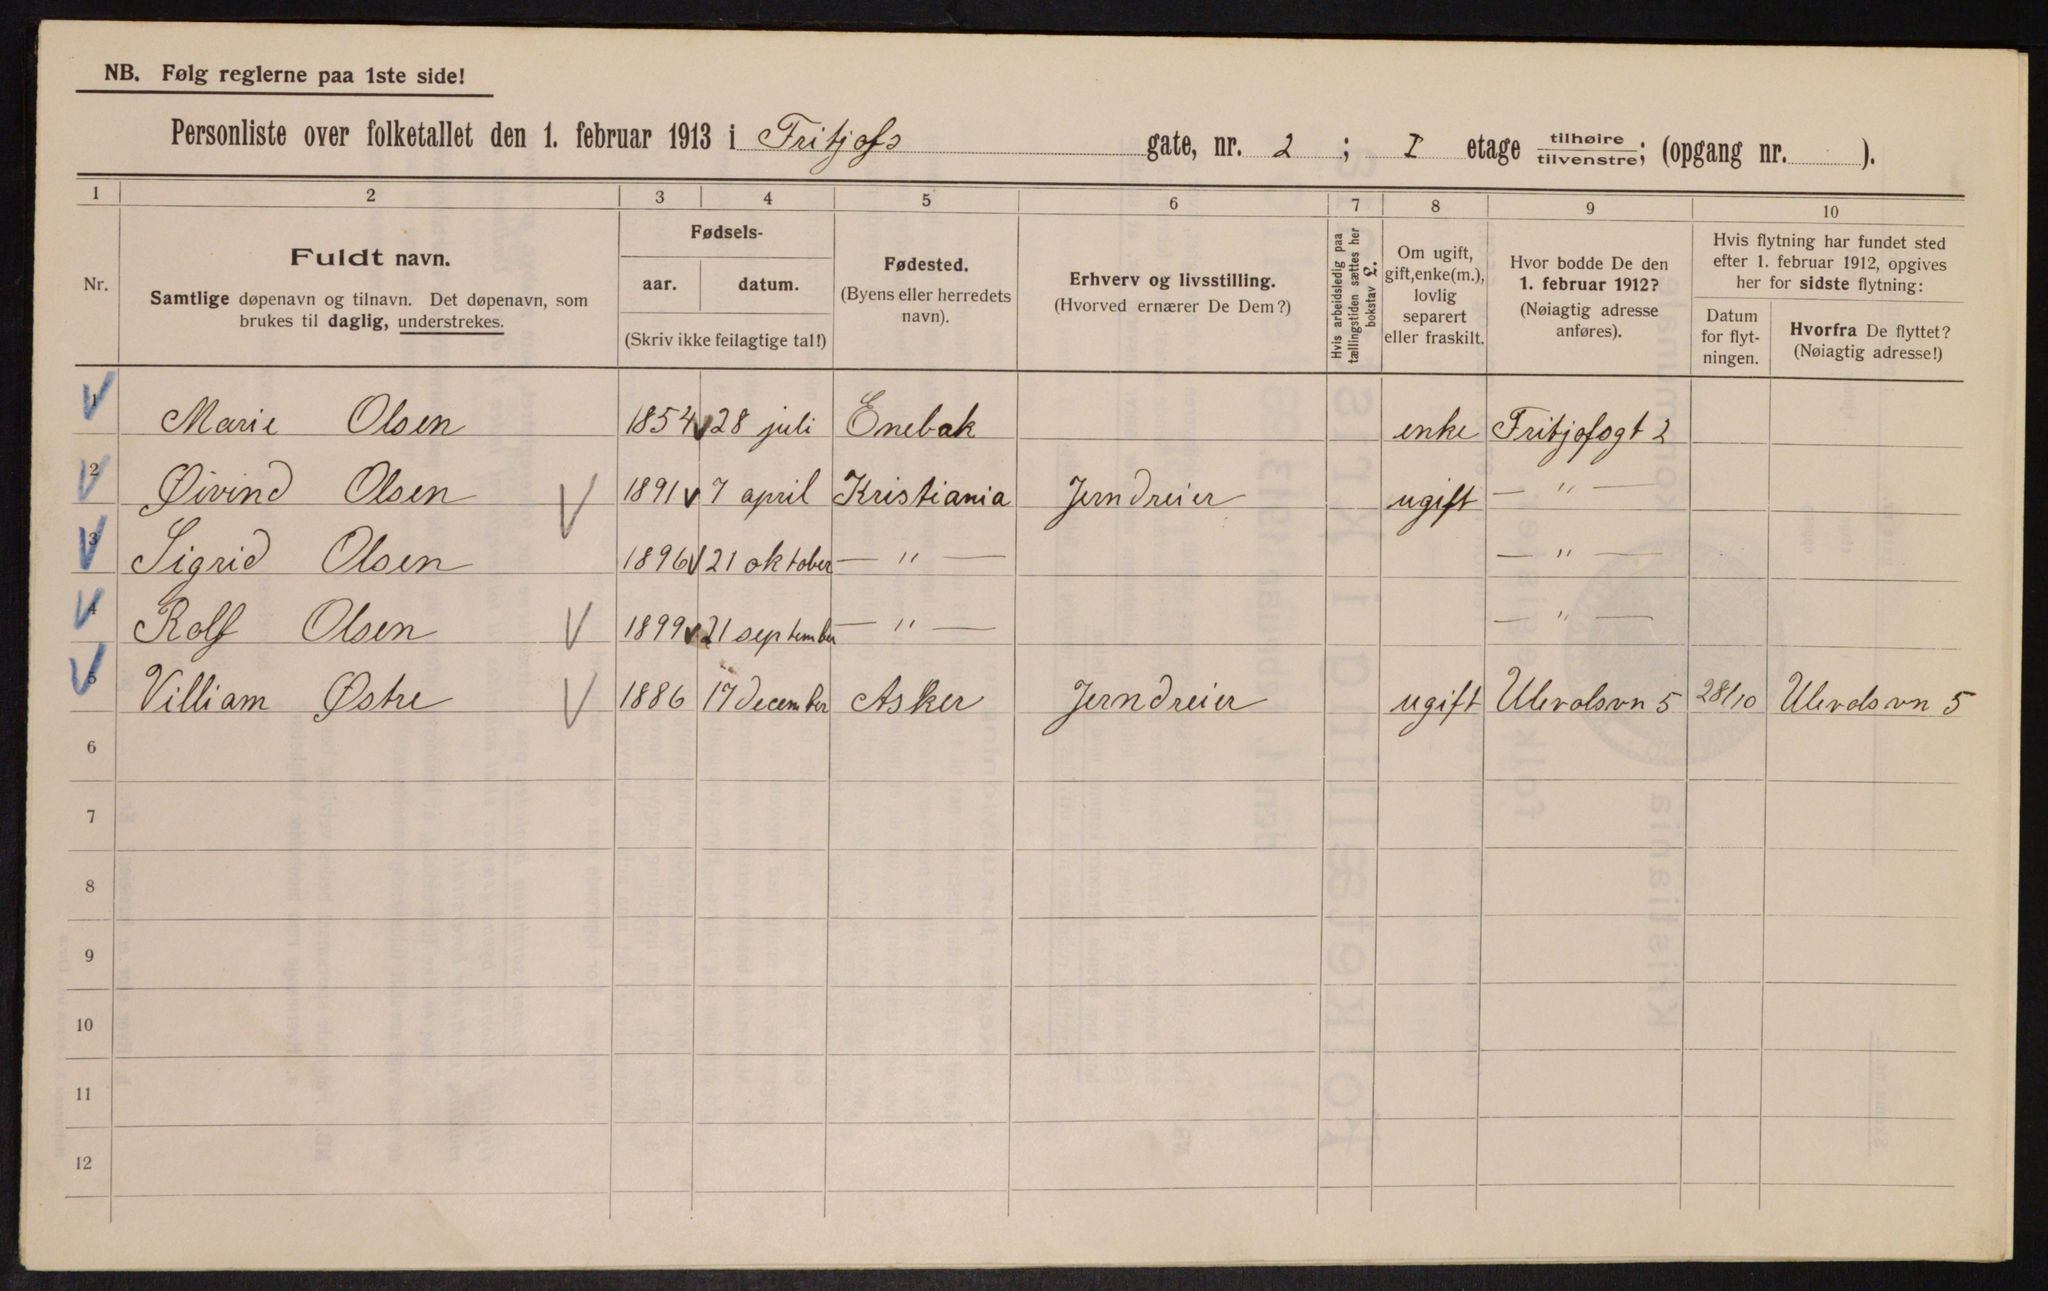 NB. Følg reglerne paa 1ste side!
Personliste over folketallet den 1. februar 1913 i Fritjofs gate, nr. 2 ; I etage tilhøire tilvenstre; (opgang nr. ).
1 2 3 4 5 6 7 8 9 10
Nr.
Fuldt navn.
Samtlige døpenavn og tilnavn. Det døpenavn, som
brukes til daglig, understrekes.
Fødsels-
aar. datum.
(Skriv ikke feilagtige tal!)
Fødested.
(Byens eller herredets
navn).
Erhverv og livsstilling.
(Hvorved ernærer De Dem?)
Hvis arbeidsledig paa
tællingstiden sættes her
bokstav L.
Om ugift,
gift, enke(m.),
lovlig
separert
eller fraskilt.
Hvor bodde De den
1. februar 1912?
(Nøiagtig adresse
anføres).
Hvis flytning har fundet sted
efter 1. februar 1912, opgives
her for sidste flytning:
Datum
for flyt-
ningen.
Hvorfra De flyttet?
(Nøiagtig adresse!)
1 Marie Olsen 1854 28 juli Enebak enke Fritjofsgt 2
2 Øivind Olsen 1891 7 april Kristiania Jerndreier ugift — " —
3 Sigrid Olsen 1896 21 oktober — " — — " —
4 Rolf Olsen 1899 21 september — " — — " —
5 Villiam Østre 1886 17 december Asker Jerndreier ugift Ulevolsvn 5 28/10 Ulevolsvn 5
6
7
8
9
10
11
12